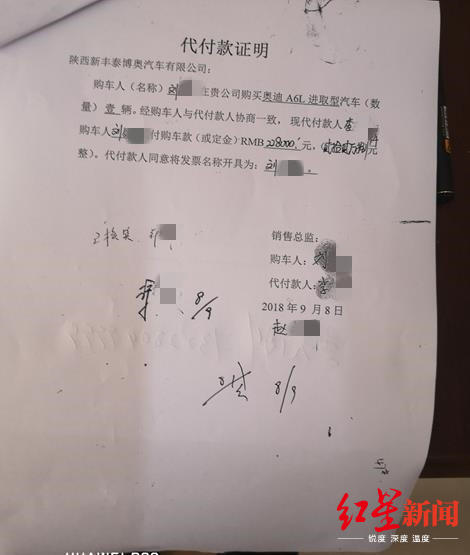 代付款证明
陕西新丰泰博奥汽车有限公司：
购车人（名称）刘 在贵公司购买奥迪 A6L 进取型汽车（数
量）壹 辆。经购车人与代付款人协商一致，现代付款人李
购车人刘 付购车款（或定金）RMB 228000 元，（ 元
整）。代付款人同意将发票名称开具为：刘 。
已核实
销售总监：
购车人：刘
代付款人：李
2018 年 9 月 8 日
赵
8/9
8/9
红星新闻
锐度 深度 温度